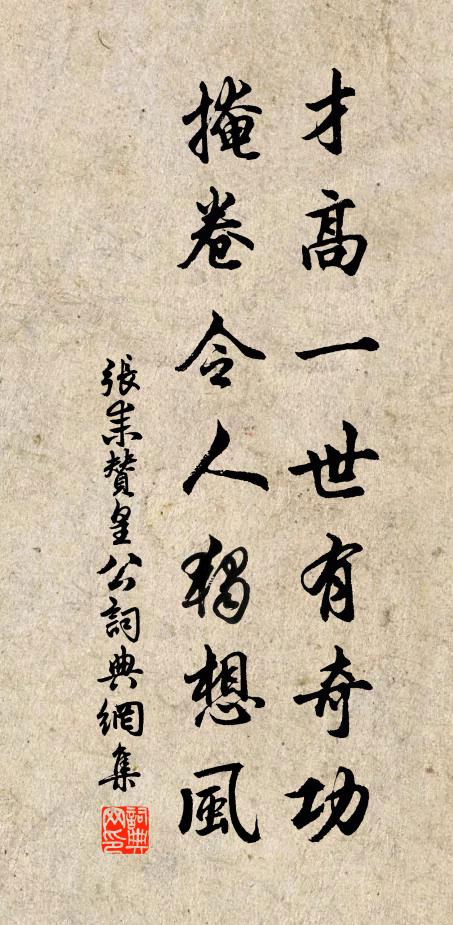 才高一世有奇功
掩卷令人独想風
張耒贊皇公詞典網集
詞典网印